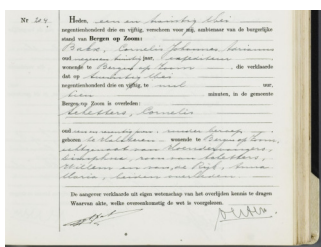 Nr
Heden, een en twintig Mei
negentienhonderd drie en vijftig, verscheen voor mij, ambtenaar van de burgerlijke
stand van Bergen op Zoom:
Baks, Cornelis Johannes Adrianus
oud negen en twintig jaar,
wonende te Bergen op Zoom, die verklaarde
dat op twintig Mei
negentienhonderd drie en vijftig, te uur,
tien minuten, in de gemeente
Bergen op Zoom is overleden:
Schetters, Cornelis
oud een en jaar, zonder beroep
geboren te Halsteren wonende te Bergen op Zoom,
echtgenoot van
Josephina, zoon van Schetters,
Willem en van de Anna
Maria, beiden overleden
De aangever verklaarde uit eigen wetenschap van het overlijden kennis te dragen
Waarvan akte, welke overeenkomstig de wet is voorgelezen.